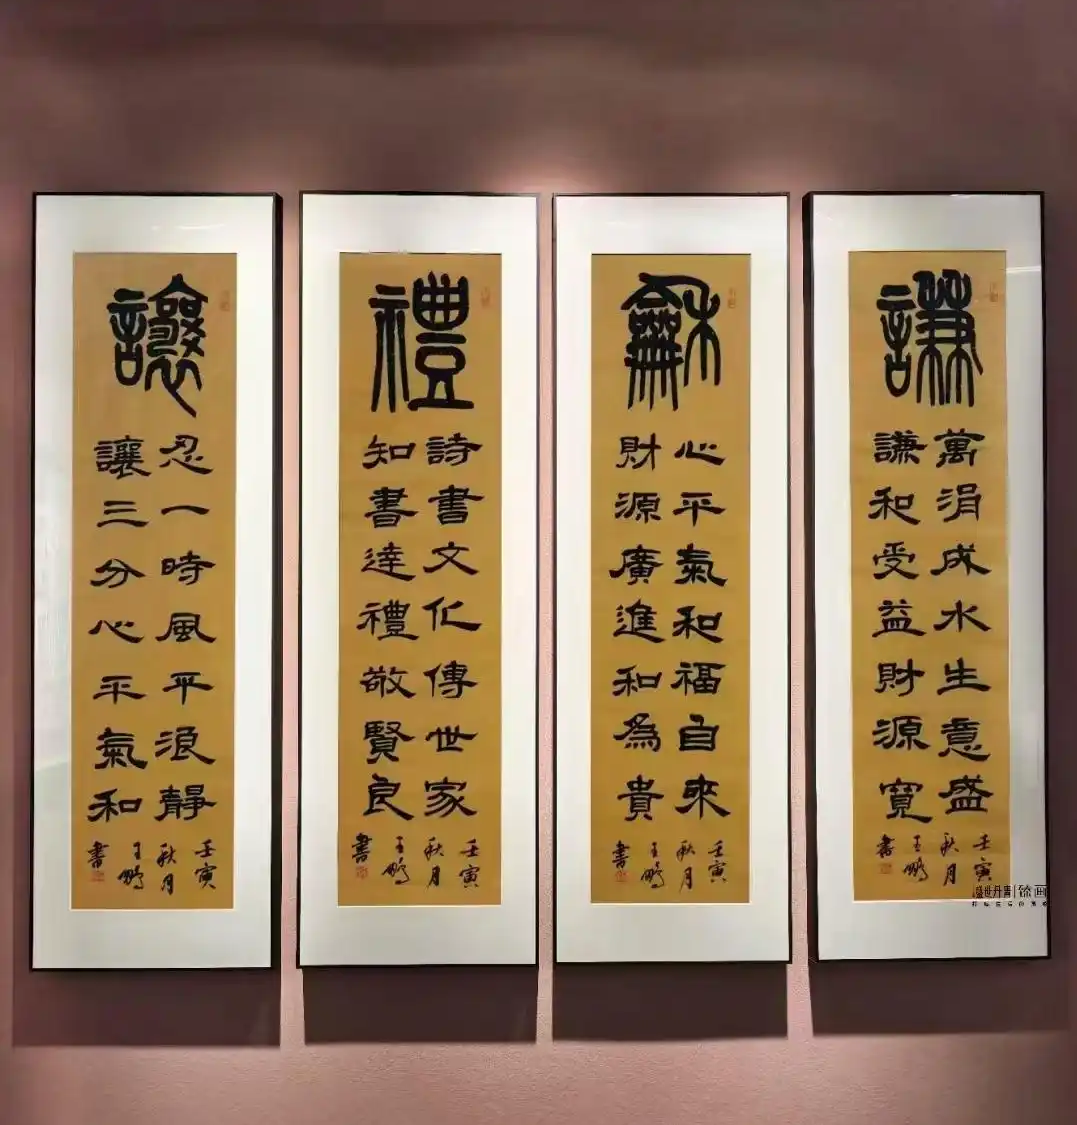 謙
萬涓成水生意盛
謙和受益財源寬
壬寅
秋月
王鵬
書
龢
心平氣和福自來
財源廣進和為貴
壬寅
秋月
王鵬
書
禮
詩書文化傳世家
知書達禮敬賢良
壬寅
秋月
王鵬
書
讓
忍一時風平浪靜
讓三分心平氣和
壬寅
秋月
王鵬
書
盛世丹青